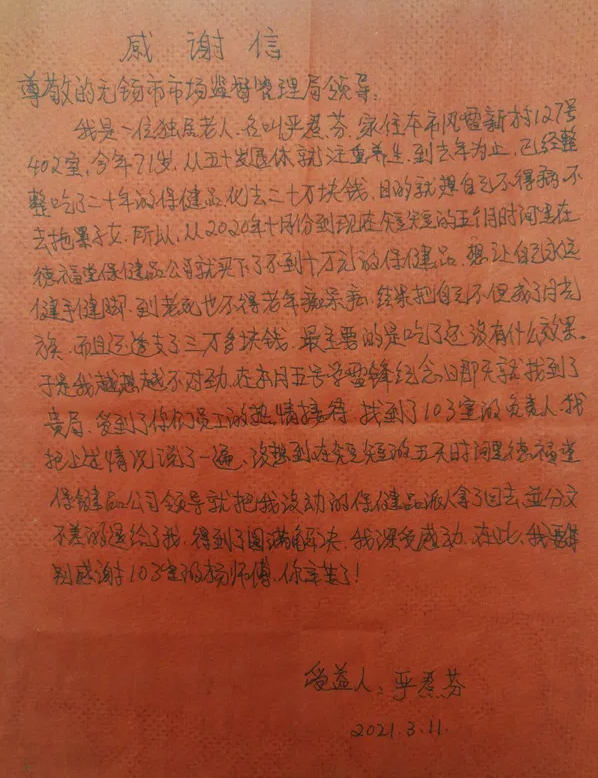 感谢信
尊敬的无锡市市场监督管理局领导:
我是一位独居老人,名叫严惹芬,家住本市风雷新村127号
402室,今年71岁,从五十岁退休就注重养生,到去年为止,已经整
整吃了二十年的保健品化去三十万块钱,目的就想自己不得病,不
去拖累子女,所以,从2020年十月份到现在短短的五个月时间里在
德福堂保健品公司就买下了不到十万元的保健品,想让自己永远
健手健脚,到老死也不得老年痴呆病,结果把自己不但成了月光
族,而且还透支了三万多块钱,最主要的是吃了还没有什么效果。
于是我越想越不对劲,在本月五号学雷锋纪念日那天就找到了
贵局,受到了你们员工的热情接待,找到了103室的负责人,我
把上述情况说了一遍,没想到在短短的五天时间里德福堂
保健品公司领导就把我没动的保健品派人拿了回去,并分文
不差的退给了我,得到了圆满解决,我深受感动,在此,我要特
别感谢103室的杨师傅,你辛苦了!
受益人:严惹芬
2021.3.11.